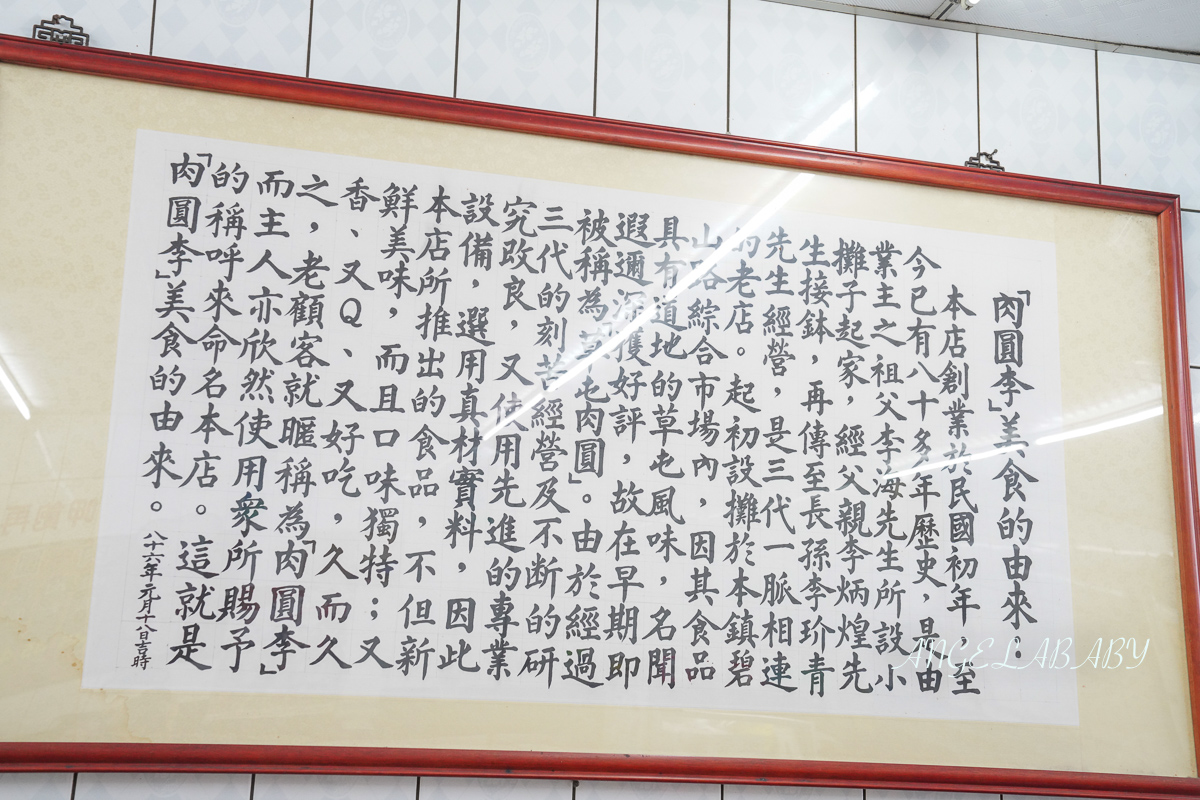 「肉圓李」美食的由來
本店創業於民國初年，至
今已有八十多年歷史，是由
業主之祖父李海先生所設小
攤子起家，經父親李炳煌先
生接鉢，再傳至長孫李玠青
先生經營，是三代一脈相連
的老店。起初設攤於本鎮碧
山路綜合市場內，因其食品
具有道地的草屯風味，名聞
遐邇深獲好評，故在早期即
被稱為「草屯肉圓」。由於經過
三代的刻苦經營及不斷的研
究改良，又使用先進的專業
設備，選用真材實料，因此
本店所推出的食品，不但新
鮮美味，而且口味獨特；又
香、又Q、又好吃，久而久
之，老顧客就暱稱為「肉圓李」
而主人亦欣然使用衆所賜予
的稱呼來命名本店。這就是
「肉圓李」美食的由來。
八十六年元月十八日吉時
ANGELABABY